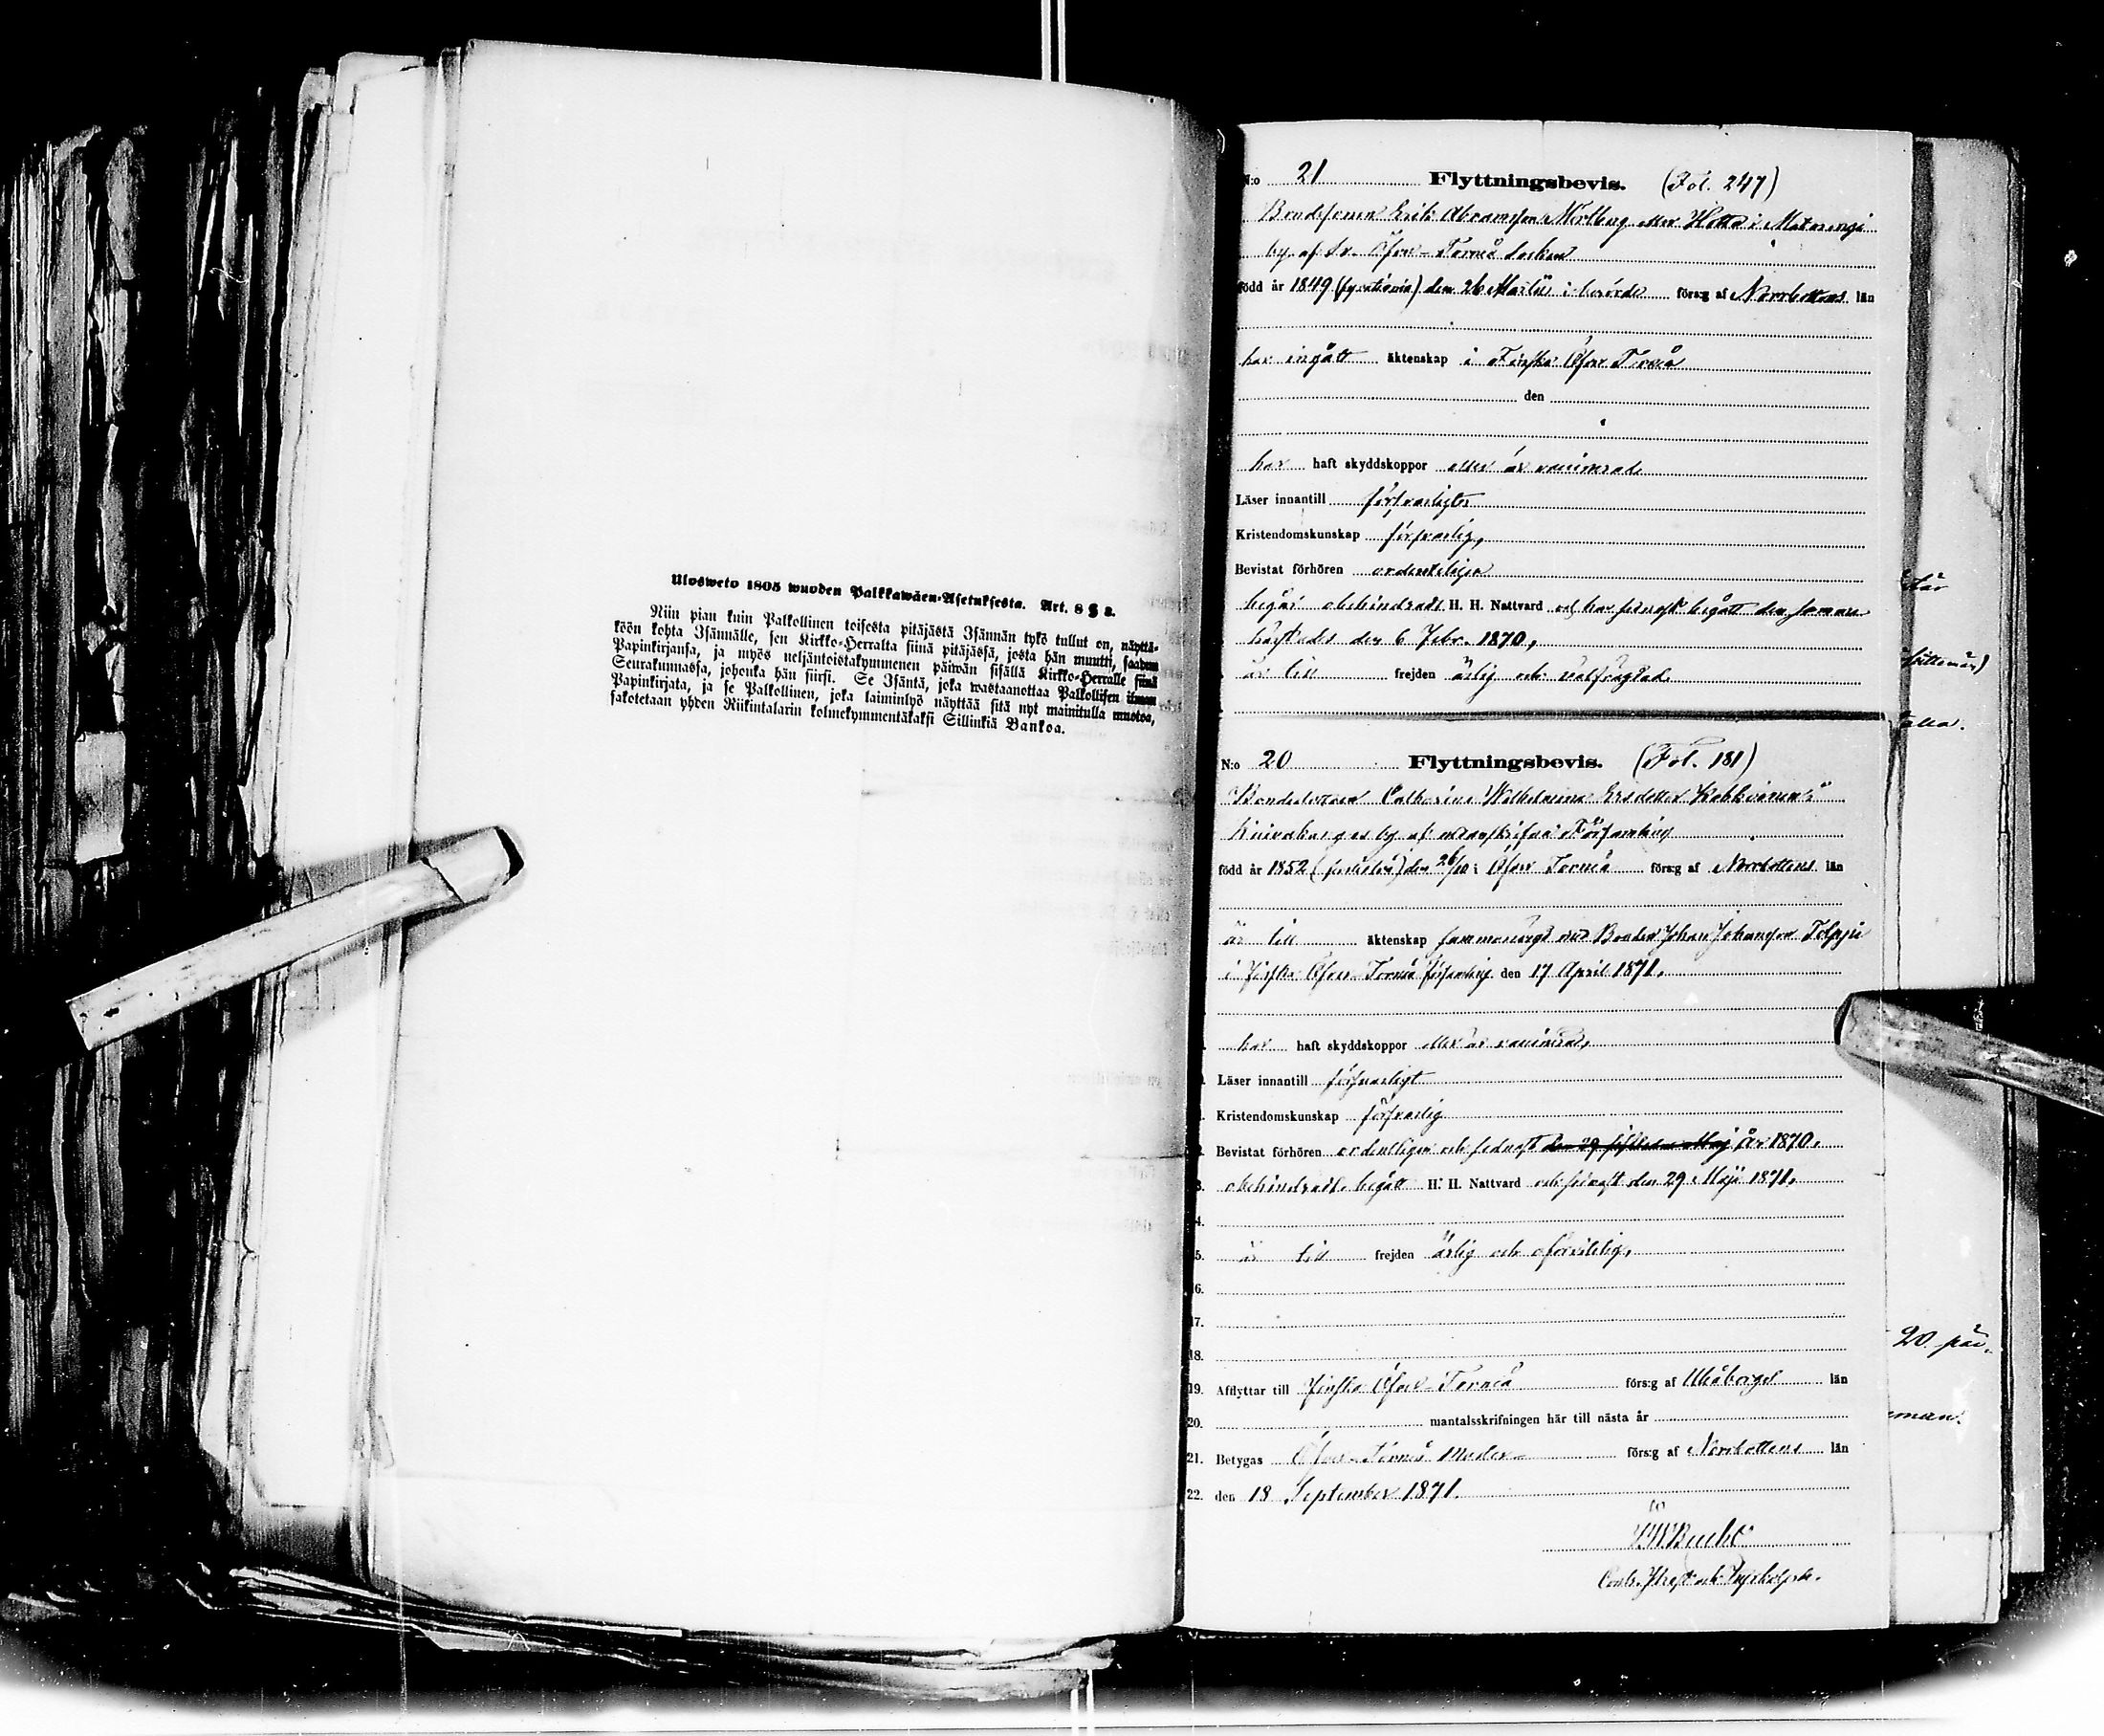 Ulosweto 1805 wuoden Palkkawäen-Asetuksesta. Art. 8 § 2.
Niin pian kuin Palkollinen toisesta pitäjästä Isännän tykö tullut on, näyttä-
köön kohta Isännälle, sen Kirkko-Herralta siinä pitäjässä, josta hän muutti, saadun
Papinkirjansa, ja myös neljäntoistakymmenen päiwän sisällä Kirkko-Herralle siinä
Seurakunnassa, johonka hän siirsi. Se Isäntä, joka wastaanottaa Palkollisen ilman
Papinkirjata, ja se Palkollinen, joka laiminlyö näyttää sitä nyt mainitulla muotoa,
sakotetaan yhden Riikintalarin kolmekymmentäkaksi Sillinkiä Bankoa.
N:o 21 Flyttningsbevis. (Fol. 247)
Bondesonen Erik Abramsson eller i Matarengi
by af Sv. Öfver-Torneå Socken
född år 1849 (fyrationio) den 26 Martii i berörde förs:g af Norrbottens län
har ingått äktenskap i Finska Öfver Torneå
den
har haft skyddskoppor eller är vaccinerad
Läser innantill försvarligt
Kristendomskunskap försvarlig,
Bevistat förhören ordentligen
begår obehindradt H. H. Nattvard och har senast begått den samma
högtides den 6 Febr. 1870,
är till frejden ärlig och välfrägdad.
N:o 20 Flyttningsbevis. (Fol. 181)
Bondedottren Catharina Wilhelmina Ersdotter
Kuivakangas by af ofvanskrifne Församling
född år 1852 (femtiotvå) den 26/10 i Öfver Torneå förs:g af Norrbottens län
är till äktenskap sammanvigd med Bonden Johan Johansson Tolppi
i Finska Öfver-Torneå församling den 17 April 1871.
har haft skyddskoppor eller är vaccinerad,
Läser innantill försvarligt
Kristendomskunskap försvarlig
Bevistat förhören ordentligen och senast den 29 sistledne Maj år 1870.
obehindradt begått H. H. Nattvard och senast den 29 Maji 1871.
4.
5. är till frejden ärlig och oförvitlig,
16.
17.
18.
19. Afflyttar till Finska Öfver-Torneå förs:g af Uleåborgs län
20. mantalsskrifningen här till nästa år
21. Betygas Öfver-Torneå Moder- förs:g af Norrbottens län
22. den 18 September 1871.
Bucht
20 päi.